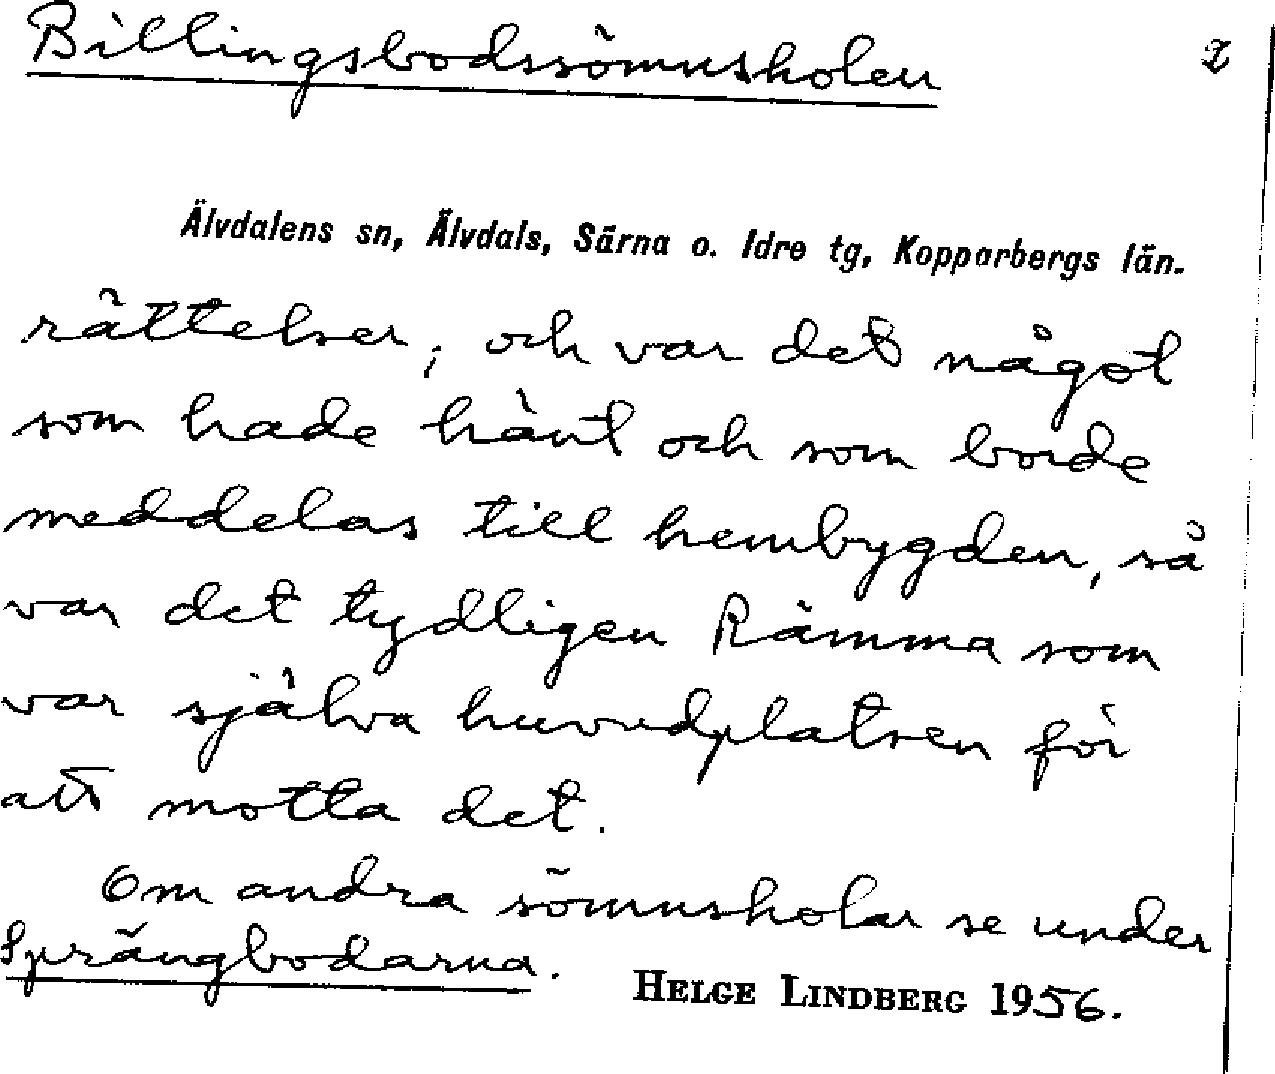 Billingsbodssömnskolen 2
Älvdalens sn, Älvdals, Särna o. Idre tg, Kopparbergs län.
rättelser; och var det något
som hade hänt och som borde
meddelas till hembygden, så
var det tydligen Rämma som
var själva huvudplatsen för
att motta det.
Om andra sömnskolar se under
Sprängbodarna. HELGE LINDBERG 1956.